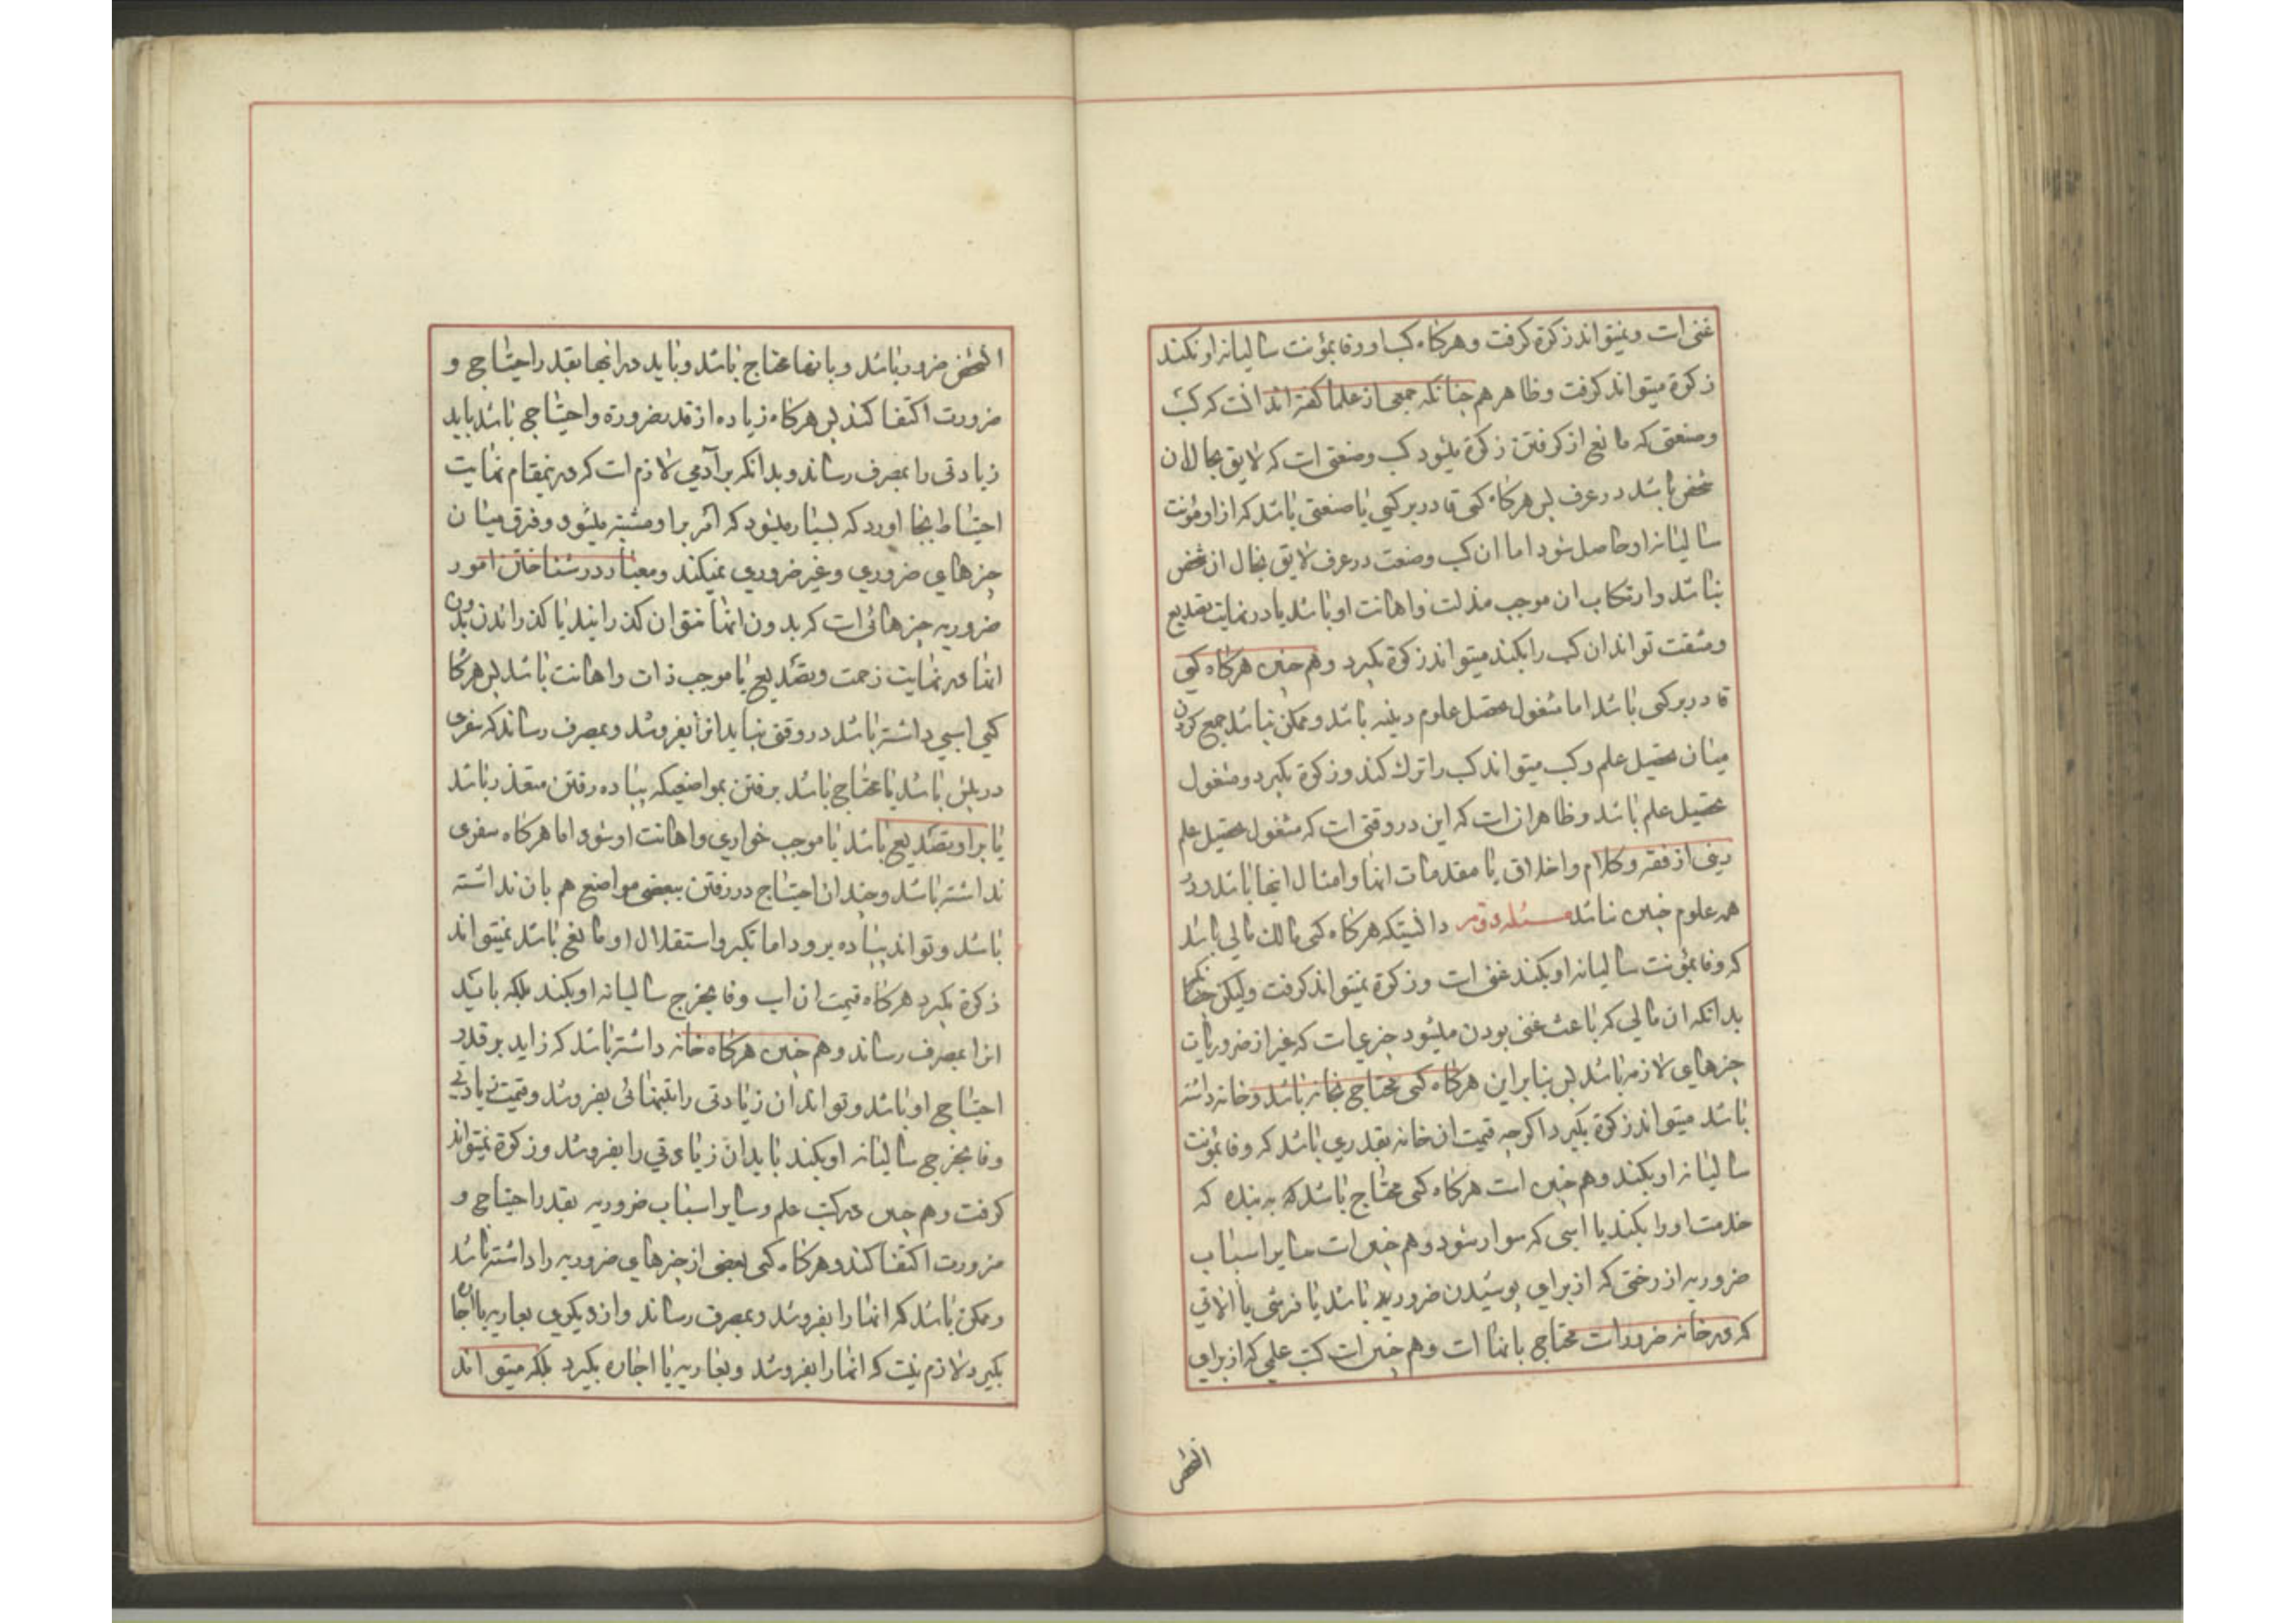 غنی است و نمیتواند زکوة گرفت و هرگاه کسب او وفا بمؤنت سالیانه او نکند
زکوة میتواند گرفت و ظاهر هم چنانکه جمعی از علما گفته اند انست که کسب
و صنعتی که مانع از گرفتن زکوة میشود کسب و صنعتی است که لایق بحال ان
شخص باشد در عرف پس هرگاه کسی قادر بر کسبی یا صنعتی باشد که از او مؤنت
سالیانه او حاصل شود اما ان کسب و صنعت در عرف لایق بحال ان شخص
نباشد و ارتکاب ان موجب مذلت و اهانت او باشد یا در نهایت تصدیع
و مشقت تواند ان کسب را بکند میتواند زکوة بگیرد و هم چنین هرگاه کسی
قادر بر کسبی باشد اما مشغول تحصیل علوم دینیه باشد و ممکن نباشد جمع کردن
میان تحصیل علم و کسب میتواند کسب را ترک کند و زکوة بگیرد و مشغول
تحصیل علم باشد و ظاهر ان است که این در وقتی است که مشغول تحصیل علم
دینی از فقه و کلام و اخلاق یا مقدمات انها و امثال اینها باشد و در
همه علوم چنین نباشد مسئله دوم دانستیکه هرگاه کسی مالک مالی باشد
که وفا بمؤنت سالیانه او بکند غنی است و زکوة نمیتواند گرفت ولیکن
بدانکه ان مالی که باعث غنی بودن میشود چیزی است که غیر از ضروریات
چیزهای لازمه باشد پس بنابراین هرگاه کسی محتاج بخانه باشد و خانه داشته
باشد میتواند زکوة بگیرد اگرچه قیمت ان خانه بقدری باشد که وفا بمؤنت
سالیانه او بکند و هم چنین است هرگاه کسی محتاج باشد که به بنده که
خدمت او را بکند یا اسبی که سوار شود و هم چنین است سایر اسباب
ضروریه از رختی که از برای پوشیدن ضروریه باشد یا فرشی یا الاتی
که در خانه ضرور است محتاج بانها است و هم چنین است کتب علمی که از برای
الشخص
الشخص ضرور باشد و بانها محتاج باشد و باید در انها بقدر احتیاج و
ضرورت اکتفا کند پس هرگاه زیاده از قدر ضرورة و احتیاجی باشد باید
زیادتی را بمصرف رساند و بدانکه بر آدمی لازم است که در اینمقام نهایت
احتیاط بجا اورد که بسیار میشود که امر بر او مشتبه میشود و فرق میان
چیزهای ضروری و غیر ضروری نمیکند و معیار در شناختن امور
ضروریه چیزهائی است که بدون انها نتوان گذرانید یا گذراندن بدون
انها در نهایت زحمت و تصدیع یا موجب ذلت و اهانت باشد پس هرگاه
کسی اسبی داشته باشد در وقتی نباید انرا بفروشد و بمصرف رساند که سفری
در پیش باشد یا محتاج باشد برفتن بمواضعیکه پیاده رفتن متعذر باشد
یا بر او تصدیع باشد یا موجب خواری و اهانت او شود اما هرگاه سفری
نداشته باشد و چندان احتیاج در رفتن ببعضی مواضع هم بان نداشته
باشد و تواند پیاده برود اما تکبر و استقلال او مانع باشد نمیتواند
زکوة بگیرد هرگاه قیمت ان اسب وفا بخرج سالیانه او بکند بلکه باید
انرا بمصرف رساند و هم چنین هرگاه خانه داشته باشد که زاید بر قدر
احتیاج او باشد و تواند ان زیادتی را بتنهائی بفروشد و قیمت زیادتی
وفا بخرجی سالیانه او بکند باید ان زیادتی را بفروشد و زکوة نمیتواند
گرفت و هم چنین در کتب علم و سایر اسباب ضروریه بقدر احتیاجی و
ضرورت اکتفا کند و هرگاه کسی بعضی از چیزهای ضروریه را داشته باشد
و ممکن باشد که انها را بفروشد و بمصرف رساند و از دیگری بعاریه یا اجاره
بگیرد لازم نیست که انها را بفروشد و بعاریه یا اجاره بگیرد بلکه میتواند